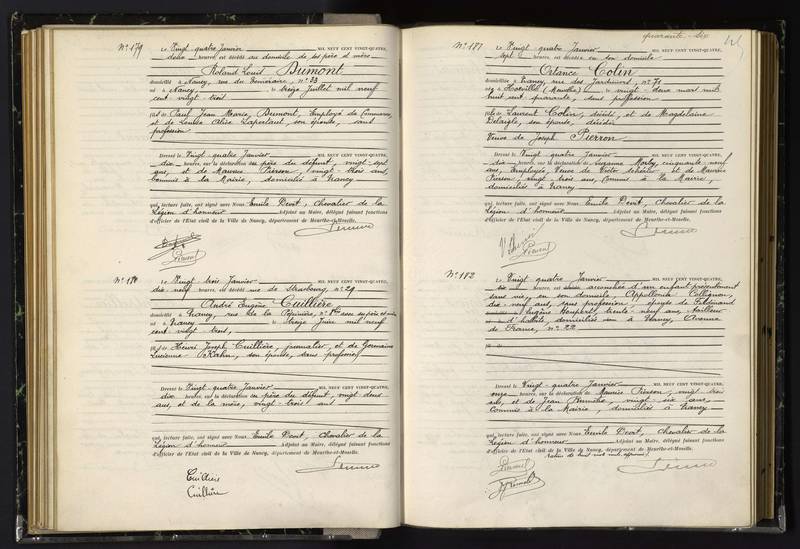 N° 179
Le Vingt-quatre Janvier MIL NEUF CENT VINGT-QUATRE,
deux heures, est décédé au domicile de ses père et mère
Roland Louis Dumont
domicilié à Nancy, rue du 33
né à Nancy le treize Juillet mil neuf
cent vingt-trois
fils de Paul Jean Marie Dumont, Employé de Commerce
et de Louise Alice son épouse, sans
profession
Dressé le Vingt-quatre Janvier MIL NEUF CENT VINGT-QUATRE,
dix heures, sur la déclaration du père du défunt, vingt sept
ans, et de Maurice Pierson, vingt-trois ans,
Commis à la Mairie, domiciliés à Nancy
qui, lecture faite, ont signé avec Nous Emile Chevalier de la
Légion d'honneur Adjoint au Maire, délégué faisant fonctions
d'officier de l'Etat civil de la Ville de Nancy, département de Meurthe-et-Moselle.
N° 180
Le Vingt trois Janvier MIL NEUF CENT VINGT-QUATRE,
dix-neuf heures, est décédé rue de Strasbourg, n° 29
André Eugène Cuillière
domicilié à Nancy, rue de la Pépinière, n°
né à Nancy le treize Juin mil neuf
cent vingt-trois,
fils de Henri Joseph Cuillière, journalier, et de Germaine
Lucienne Kahn, son épouse, sans profession
Dressé le Vingt-quatre Janvier MIL NEUF CENT VINGT-QUATRE,
dix heures, sur la déclaration du père du défunt, vingt deux
ans, et de la mère, vingt-trois ans
qui, lecture faite, ont signé avec Nous Emile Chevalier de la
Légion d'honneur Adjoint au Maire, délégué faisant fonctions
d'officier de l'Etat civil de la Ville de Nancy, département de Meurthe-et-Moselle.
Cuillière
Cuillière
quarante-six
N° 181
Le Vingt-quatre Janvier MIL NEUF CENT VINGT-QUATRE,
sept heures, est décédée en son domicile
Ortance Colin
domiciliée à Nancy, rue des Jardiniers, n° 71
née à (Meurthe) le vingt-deux mars mil
huit cent quarante, sans profession
fille de Laurent Colin, décédé, et de Magdelaine
son épouse, décédée
Veuve de Joseph Pierron
Dressé le Vingt-quatre Janvier MIL NEUF CENT VINGT-QUATRE,
dix heures, sur la déclaration de Suzanne cinquante neuf
ans, employée, Veuve de Victor et de Maurice
Pierson, vingt-trois ans, Commis à la Mairie,
domiciliés à Nancy
qui, lecture faite, ont signé avec Nous Emile Chevalier de la
Légion d'honneur Adjoint au Maire, délégué faisant fonctions
d'officier de l'Etat civil de la Ville de Nancy, département de Meurthe-et-Moselle.
N° 182
Le Vingt quatre Janvier MIL NEUF CENT VINGT-QUATRE,
six heures, est accouchée d'un enfant présentement
sans vie, en son domicile, Appollonie Collignon,
dix-neuf ans, sans profession, épouse de Ferdinand
Eugène Houpert, trente-neuf ans, tailleur
d'habits, domiciliés à Nancy, Avenue
de France, n° 22
Dressé le Vingt-quatre Janvier MIL NEUF CENT VINGT-QUATRE,
onze heures, sur la déclaration de Maurice Pierson, vingt-trois
ans, et de Jean vingt-six ans,
Commis à la Mairie, domiciliés à Nancy
qui, lecture faite, ont signé avec Nous Emile Chevalier de la
Légion d'honneur Adjoint au Maire, délégué faisant fonctions
d'officier de l'Etat civil de la Ville de Nancy, département de Meurthe-et-Moselle.